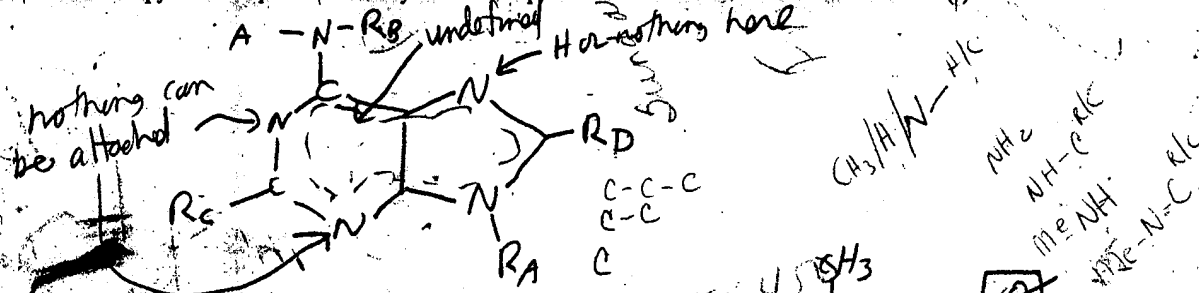 A - N - RB
undefined
H or nothing here
nothing can
be attached
C
N
N
RD
C
Rc
N
N
RA
C-C-C
C-C
C
CH3/H/N-H/C
NH2
NH-C R/C
Me NH
Me-N-C R/C